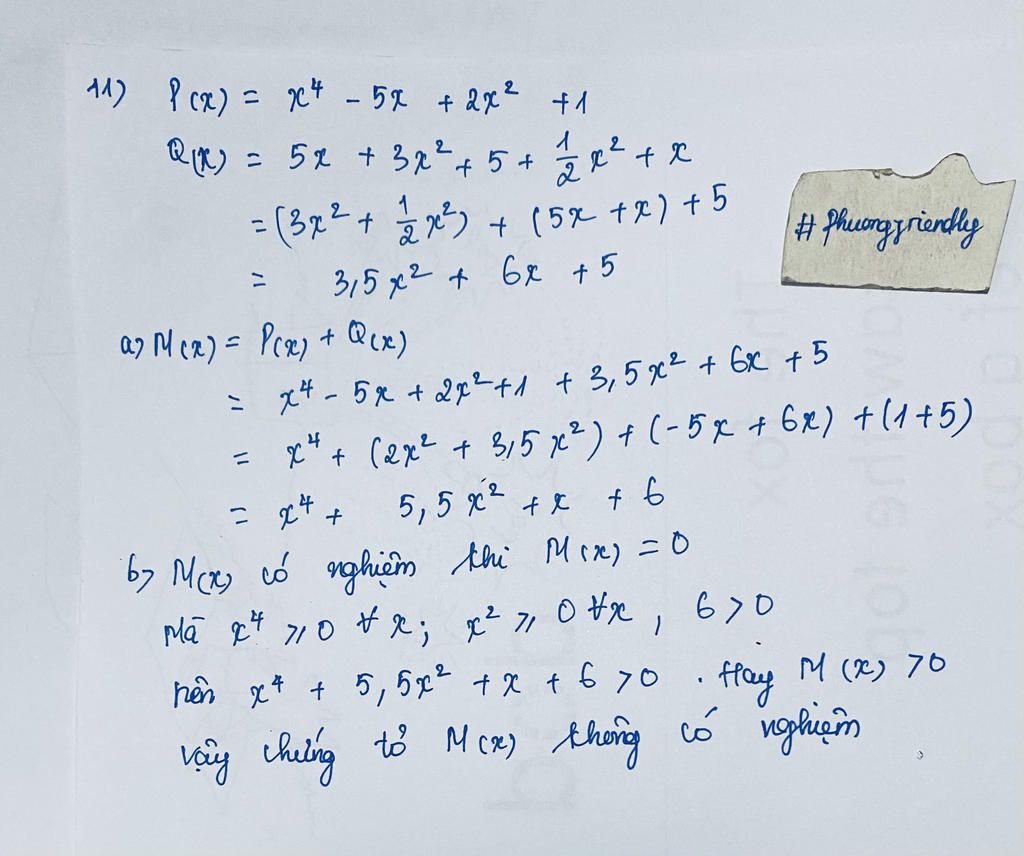 11) P(x) = x⁴ - 5x + 2x² + 1
Q(x) = 5x + 3x² + 5 + 1/2 x² + x
= (3x² + 1/2 x²) + (5x + x) + 5
= 3,5x² + 6x + 5
# phuongfriendly
a) M(x) = P(x) + Q(x)
= x⁴ - 5x + 2x² + 1 + 3,5x² + 6x + 5
= x⁴ + (2x² + 3,5x²) + (-5x + 6x) + (1+5)
= x⁴ + 5,5x² + x + 6
b) M(x) có nghiệm khi M(x) = 0
Mà x⁴ ≥ 0 ∀x; x² ≥ 0 ∀x, 6 > 0
nên x⁴ + 5,5x² + x + 6 > 0. Hay M(x) > 0
vậy chứng tỏ M(x) không có nghiệm